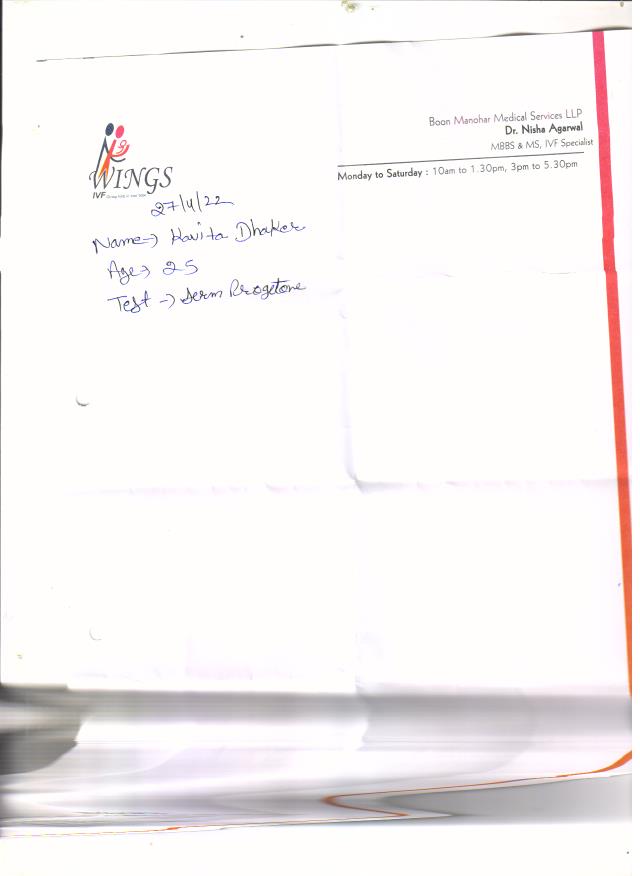 Boon Manohar Medical Services LLP
Dr. Nisha Agarwal
MBBS & MS, IVF Specialist
Monday to Saturday : 10am to 1.30pm, 3pm to 5.30pm
WINGS
IVF
27/4/22
Name → Kavita Dhaker
Age → 25
Test → Serm Progetone